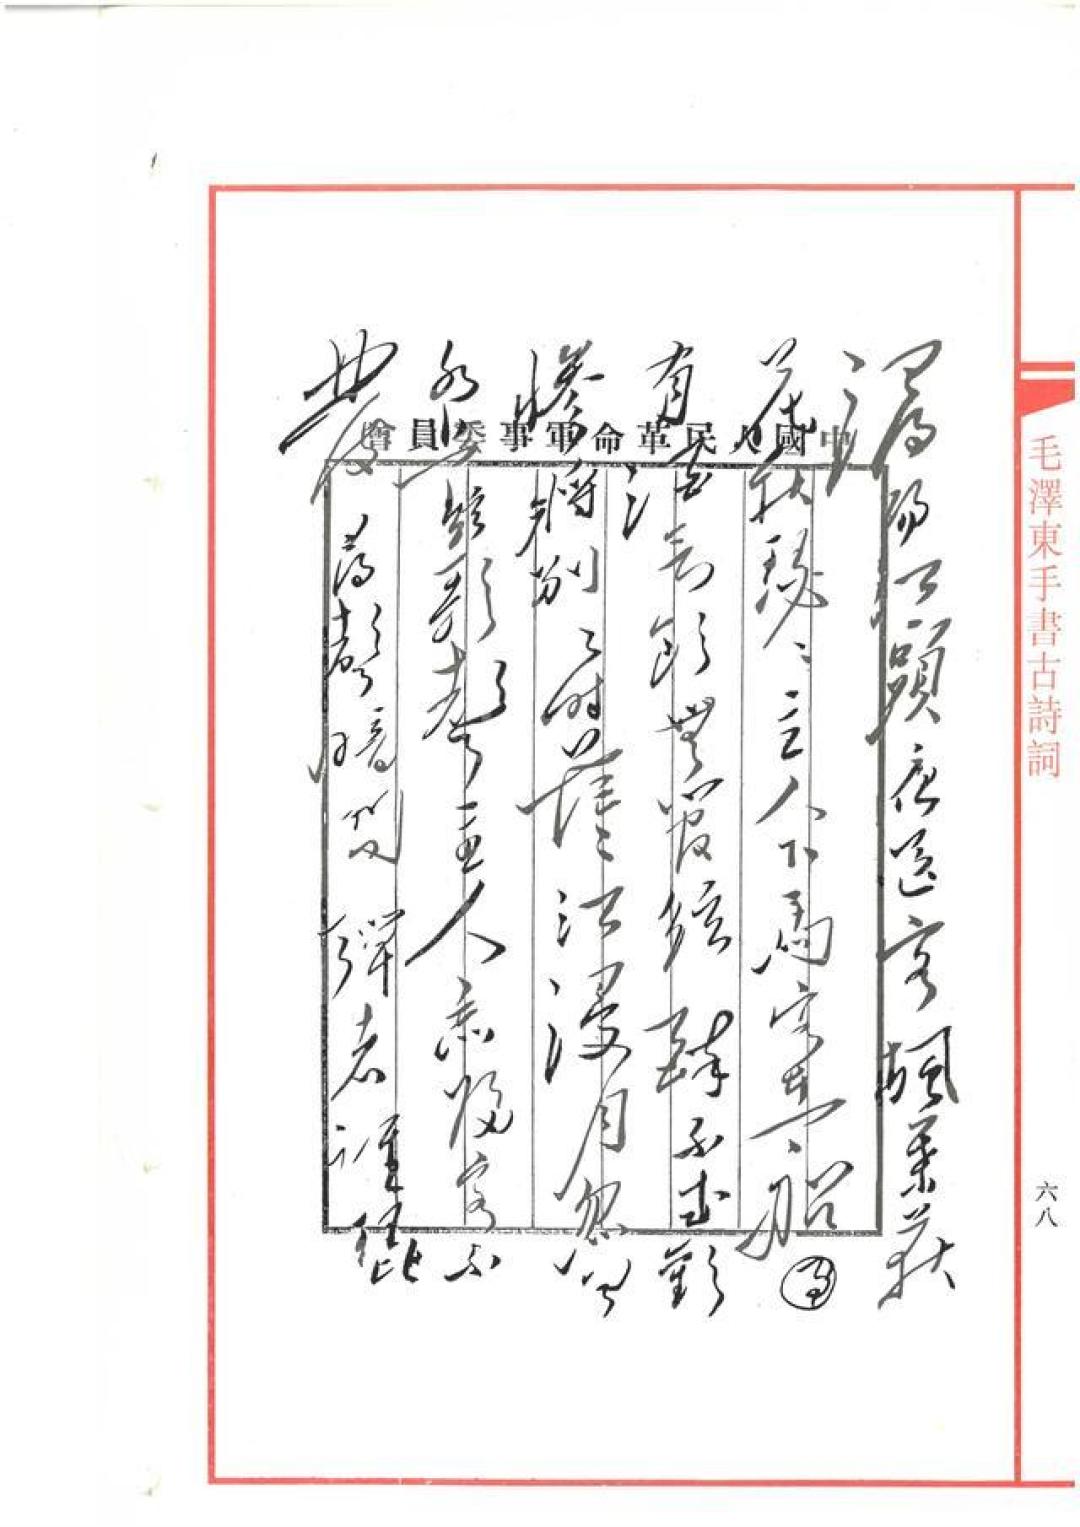 毛澤東手書古詩詞
六八
中國人民革命軍事委員會
潯陽江頭夜送客楓葉荻
花秋瑟〻主人下馬客在船
有酒欲飲無管絃醉不成歡
慘將別〻時茫〻江浸月忽聞
水上琵琶聲主人忘歸客不
發尋聲暗問彈者誰琵